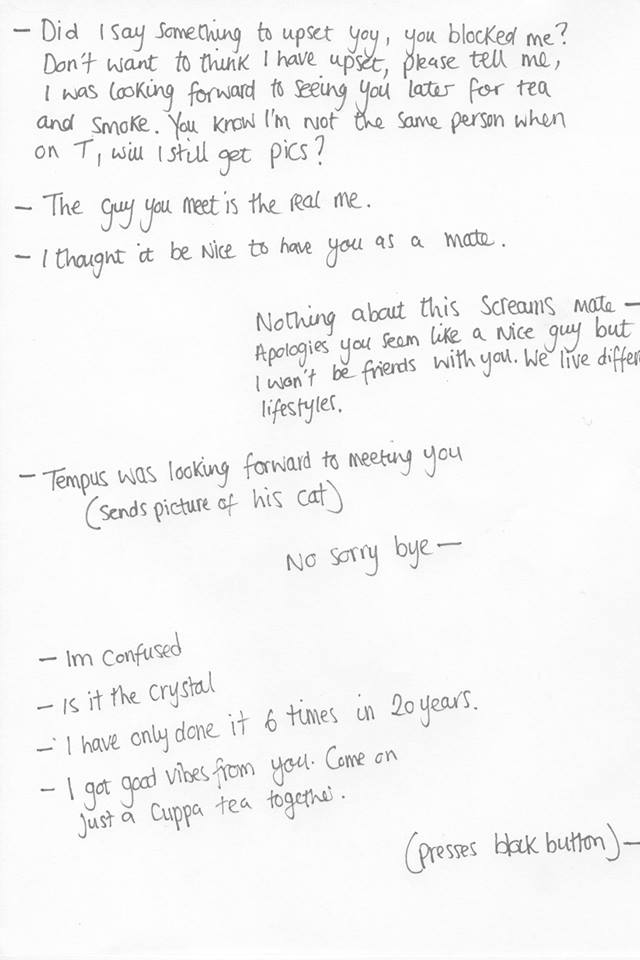 – Did I say something to upset yoy, you blocked me?
Don't want to think I have upset, please tell me,
I was looking forward to seeing you later for tea
and smoke. You know I'm not the same person when
on T, will I still get pics?
– The guy you meet is the real me.
– I thought it be nice to have you as a mate.
Nothing about this screams mate –
Apologies you seem like a nice guy but
I won't be friends with you. We live differ
lifestyles.
– Tempus was looking forward to meeting you
(sends picture of his cat)
No sorry bye –
– Im confused
– Is it the crystal
– I have only done it 6 times in 20 years.
– I got good vibes from you. Come on
just a cuppa tea together.
(presses block button) –